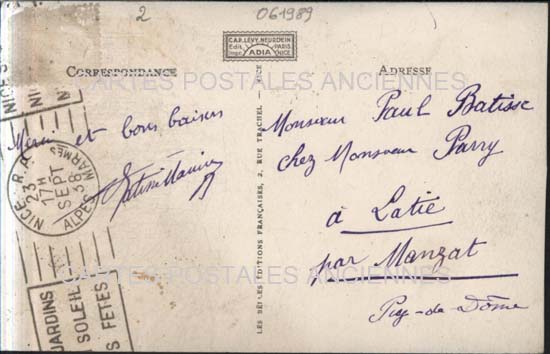 2
061989
CAP. LÉVY & NEURDEIN
Edit. PARIS
Impr. ADIA NICE
CORRESPONDANCE
ADRESSE
CARTES POSTALES ANCIENNES
NICE
Merci et bons baisers
Monsieur Paul Batisse
chez Monsieur Parry
à Latié
par Manzat
Puy-de-Dôme
NICE R.P.
23
17H
SEPT
38
ALPES MARMES
LES BELLES ÉDITIONS FRANÇAISES, 2, RUE TRACHEL - NICE
CARTES POSTALES ANCIENNES
JARDINS
SOLEIL
FETES